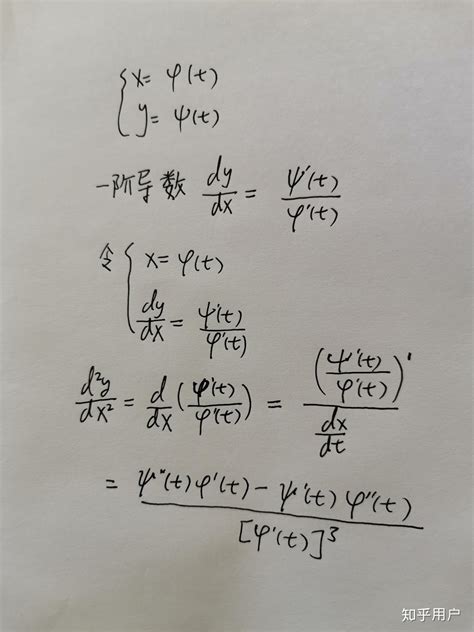 { x = φ(t)
y = ψ(t)
一阶导数 dy/dx = ψ'(t)/φ'(t)
令 { x = φ(t)
dy/dx = ψ'(t)/φ'(t)
d²y/dx² = d/dx (φ'(t)/φ'(t)) = (ψ'(t)/φ'(t))' / (dx/dt)
= (ψ''(t)φ'(t) - ψ'(t)φ''(t)) / [φ'(t)]³
知乎用户